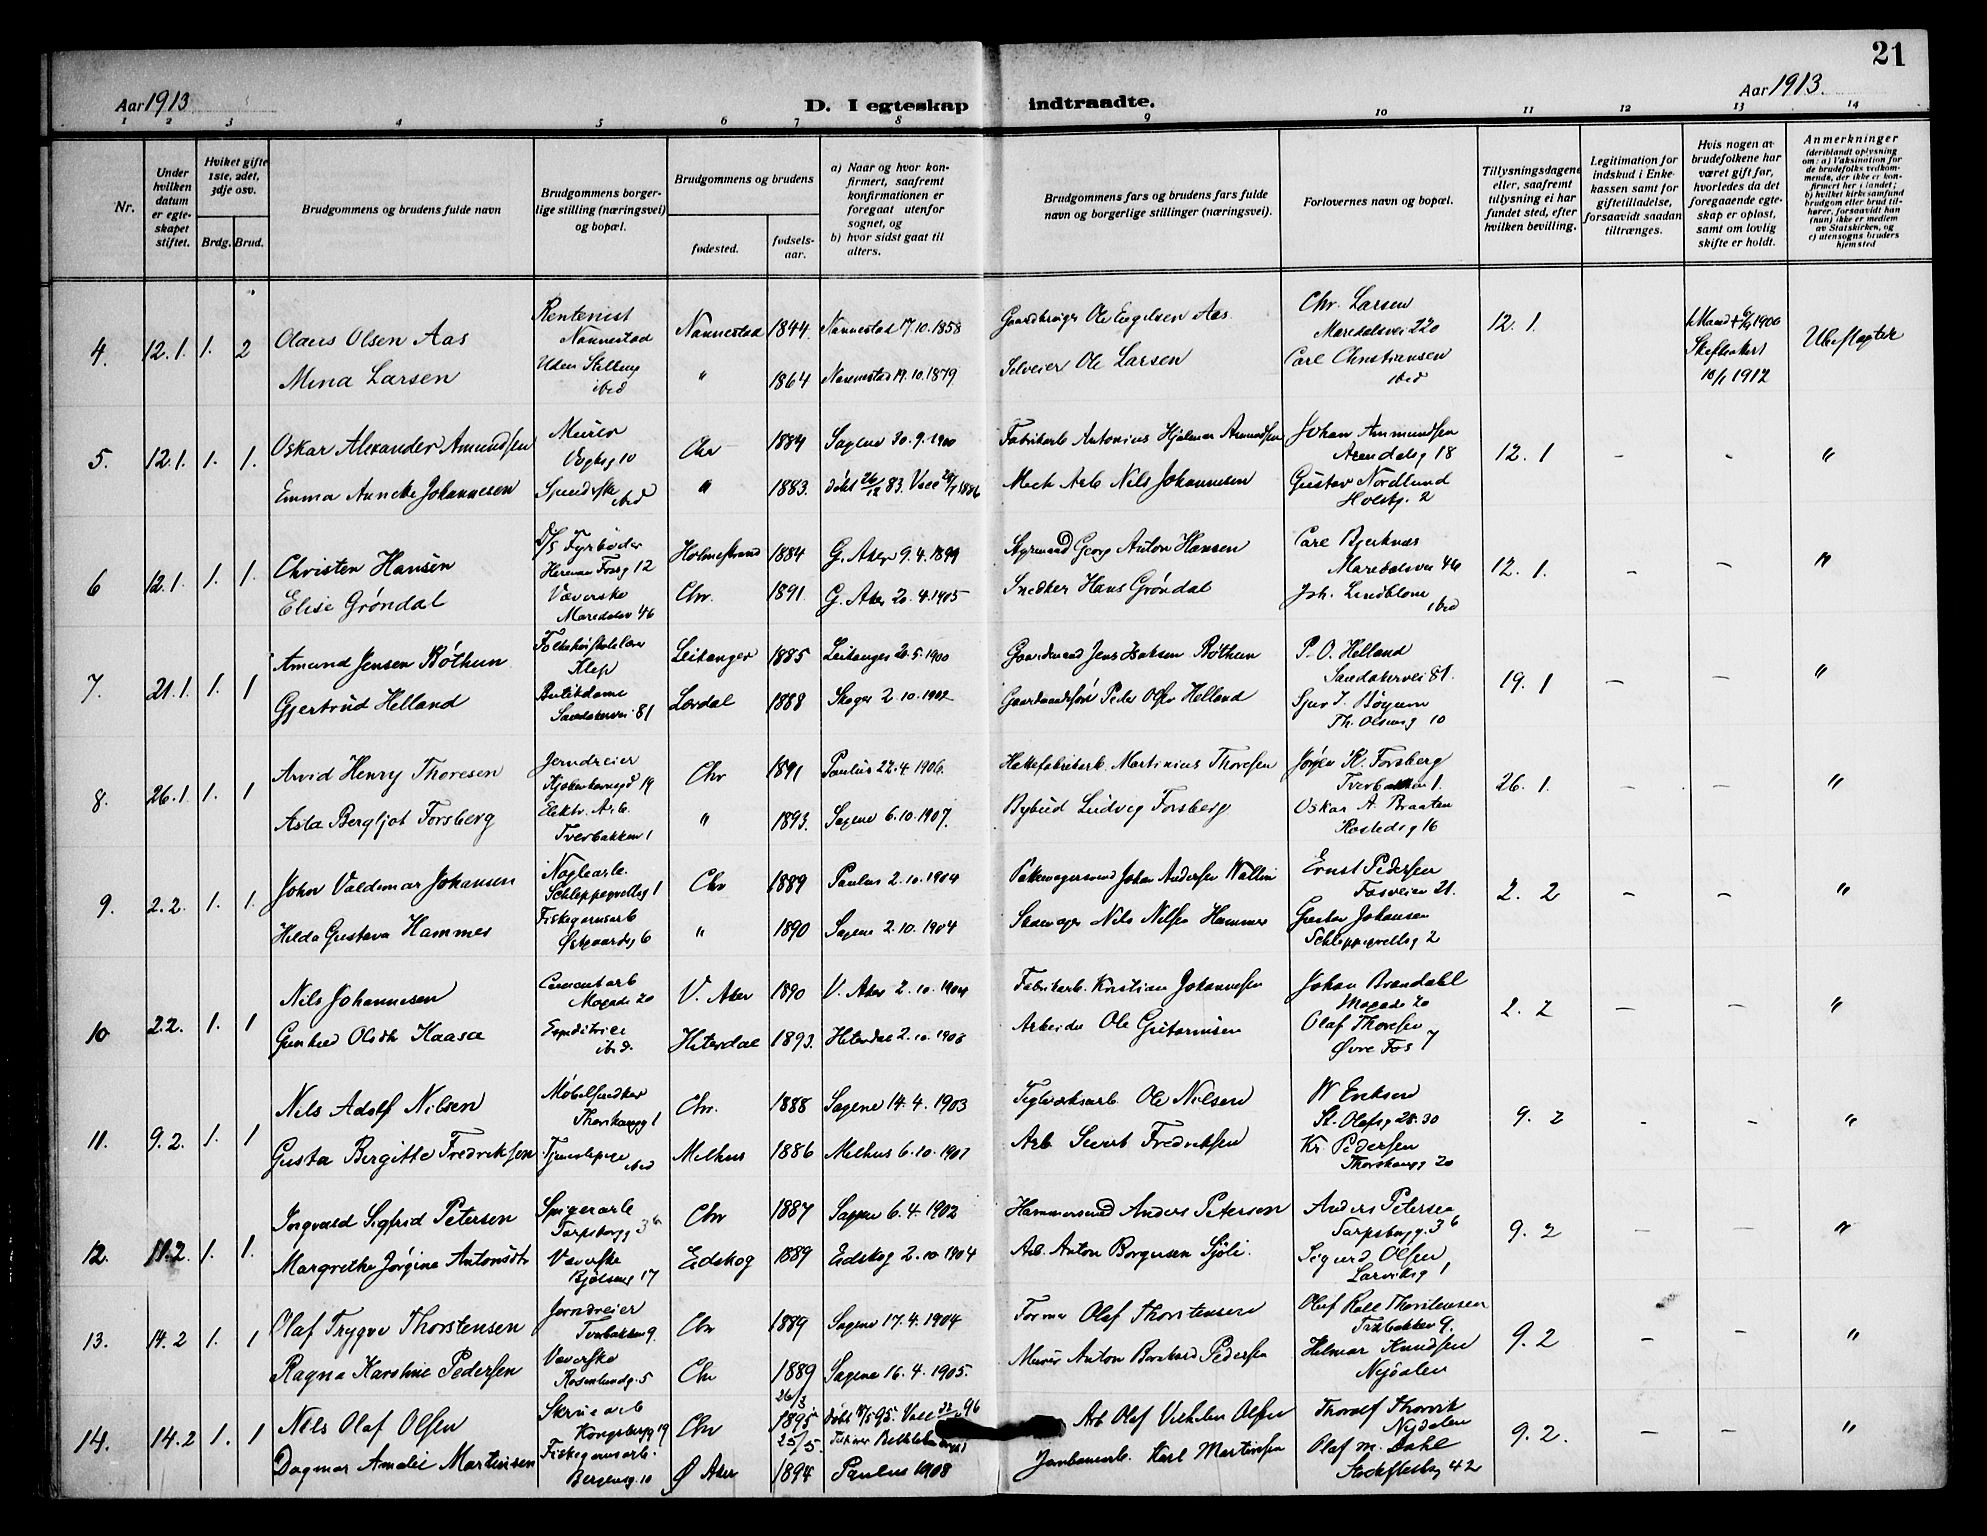 21
Aar 1913
D. I egteskap indtraadte.
Aar 1913.
1 2 3 4 5 6 7 8 9 10 11 12 13 14
Nr.
Under hvilken datum er egteskapet stiftet.
Hviket gifte 1ste, 2det, 3dje osv.
Brdg. Brud.
Brudgommens og brudens fulde navn
Brudgommens borgerlige stilling (næringsvei) og bopæl.
Brudgommens og brudens
fødested.
fødselsaar.
a) Naar og hvor konfirmert, saafremt konfirmationen er foregaat utenfor sognet, og
b) hvor sidst gaat til alters.
Brudgommens fars og brudens fars fulde navn og borgerlige stillinger (næringsvei).
Forlovernes navn og bopæl.
Tillysningsdagene eller, saafremt tillysning ei har fundet sted, efter hvilken bevilling.
Legitimation for indskud i Enkekassen samt for giftetilladelse, forsaavidt saadan tiltrænges.
Hvis nogen av brudefolkene har været gift før, hvorledes da det foregaaende egteskap er opløst, samt om lovlig skifte er holdt.
Anmerkninger (deriblandt oplysning om: a) Vaksination for de brudefolks vedkommende, der ikke er konfirmert her i landet; b) hvilket kirkesamfund brudgom eller brud tilhører, forsaavidt han (hun) ikke er medlem av Statskirken, og c) utensogns bruders hjemsted
4 12.1. 1. 2 Olaus Olsen Aas Rentenist Nannestad Nannestad 1844. Nannestad 17.10.1858 Gaardbruger Ole Engelsen Aas. Chr. Larsen Maredalsvei 220 12. 1. 1900
Mina Larsen Uden Stilling ibid " 1864 Nannestad 19.10.1879. Selveier Ole Larsen Carl Christiansen ibid 10/1 1912
5. 12.1. 1. 1. Oskar Alexander Amundsen Murer Vogtsg 10 Chr 1884 Sagene 30.9.1900 Fabrikarb Antonius Hjalmar Amundsen Johan Ammundsen Arendalsg 18 12. 1 - - "
Emma Annette Johannesen ibid " 1883. døbt 26/12 83. Mek Arb Nils Johannesen Gustav Nordlund Holstg. 2
6 12.1. 1. 1. Christen Hansen D/S Fyrbøder Herman Fossg 12 Holmestrand 1884 G. Aker 9.4.1899 Styrmand Georg Anton Hansen Carl Bjerknæs Maredalsvei 46 12. 1. - - "
Elise Grøndal Væverske Maredalsv 46 Chr. 1891. G. Aker 20.4.1905 Snedker Hans Grøndal Joh. Lindblom ibid
7. 21.1. 1. 1 Amund Jensen Bøthun Folkehøiskolelærer Klep Leikanger 1885 Leikanger 20.5.1900 Gaardmand Jens Bøthun P. O. Helland Sandakervei 81. 19. 1 - - "
Gjertrud Helland Butikdame Sandakervei 81 Lærdal 1888 Skoger 2.10.1902 Peder Olsen Helland Sjur J. Bøyum Th. Olsensg 10
8. 26.1. 1. 1 Arvid Henry Thoresen Jerndreier 19 Chr 1891 Paulus 22.4.1906. Hattefabrikark. Martinius Thoresen Jørgen K. Forsberg Tverbakken 1. 26. 1. - - "
Asta Bergljot Forsberg Elektr. Arb. Tverbakken 1 " 1893. Sagene 6.10.1907. Bybud Ludvig Forsberg Oskar A. Braaten Rostedsg 16
9. 2.2. 1. 1. John Valdemar Johansen Nøglearb. Schleppegrellsg 1 Chr 1889 Paulus 2.10.1904 Johan Andersen Wallin Ernst Pedersen Fosveien 21. 2. 2 - - "
Hilda Gustava Hammer Fiskegarnsarb Østgaardsg 6 " 1890 Sagene 2.10.1904 Nils Nilsen Hammer Gustav Johansen Schleppegrellsg 2
10 2.2. 1. 1 Nils Johannesen Cementarb Mogade 20 V. Aker 1890 V. Aker 2.10.1904 Fabrikarb. Kristian Johannesen Johan Brandahl Mogade 20 2. 2 - - "
Gunhild Olsdtr Kaasa ibid. Hiterdal 1893. Hiterdal 2.10.1908 Arbeider Ole Olaf Thoresen Øvre Fos 7
11. 9.2. 1. 1 Nils Adolf Nilsen Møbelsnedker 1 Chr. 1888 Sagene 14.4.1903 Teglverksarb. Ole Nilsen W Eriksen St. Olafsg 28.30 9. 2 - - "
Gusta Bergitte Fredriksen Tjenestepige ibid Melhus 1886 Melhus 6.10.1901 Arb Sivert Fredriksen Kr. Pedersen 20
12. 11.2. 1. 1. Ingvald Sigfrid Petersen Spigerarb Sarpsborgg 3b Chr 1887 Sagene 6.4.1902 Hammersmed Anders Petersen Anders Petersen Sarpsborgg. 3b 9. 2 - - "
Margrethe Jørgine Antonsdtr Væverske Bjølseng 17 Eidskog 1889 Eidskog 2.10.1904 Arb. Anton Borgersen Sjøli. Sigurd Olsen Larviksg 1
13. 14.2 1. 1 Olaf Trygve Thorstensen Jerndreier Tverbakken 9. Chr 1889 Sagene 17.4.1904 Former Olaf Thorstensen Olaf Rolf Thorstensen Tverbakken 9. 9. 2 - - "
Ragna Karoline Pedersen Væverske Rosenlundg. 5 Chr 1889 Sagene 16.4.1905. Murer Anton Bernhard Pedersen Helmar Knudsen Nydalen
14. 14.2 1. 1 Nils Olaf Olsen Skruearb Kongsbergg 19 Chr 26/3 1895 Arb Olaf Vilhelm Olsen Nydalen 9. 2. "
Dagmar Amalie Martinsen Fiskegarnsarb. Bergensg. 10 Ø Aker 25/5. 1894 Paulus 1908 Jernbanearb. Karl Martinsen Olaf M. Dahl Stockflethsg 42